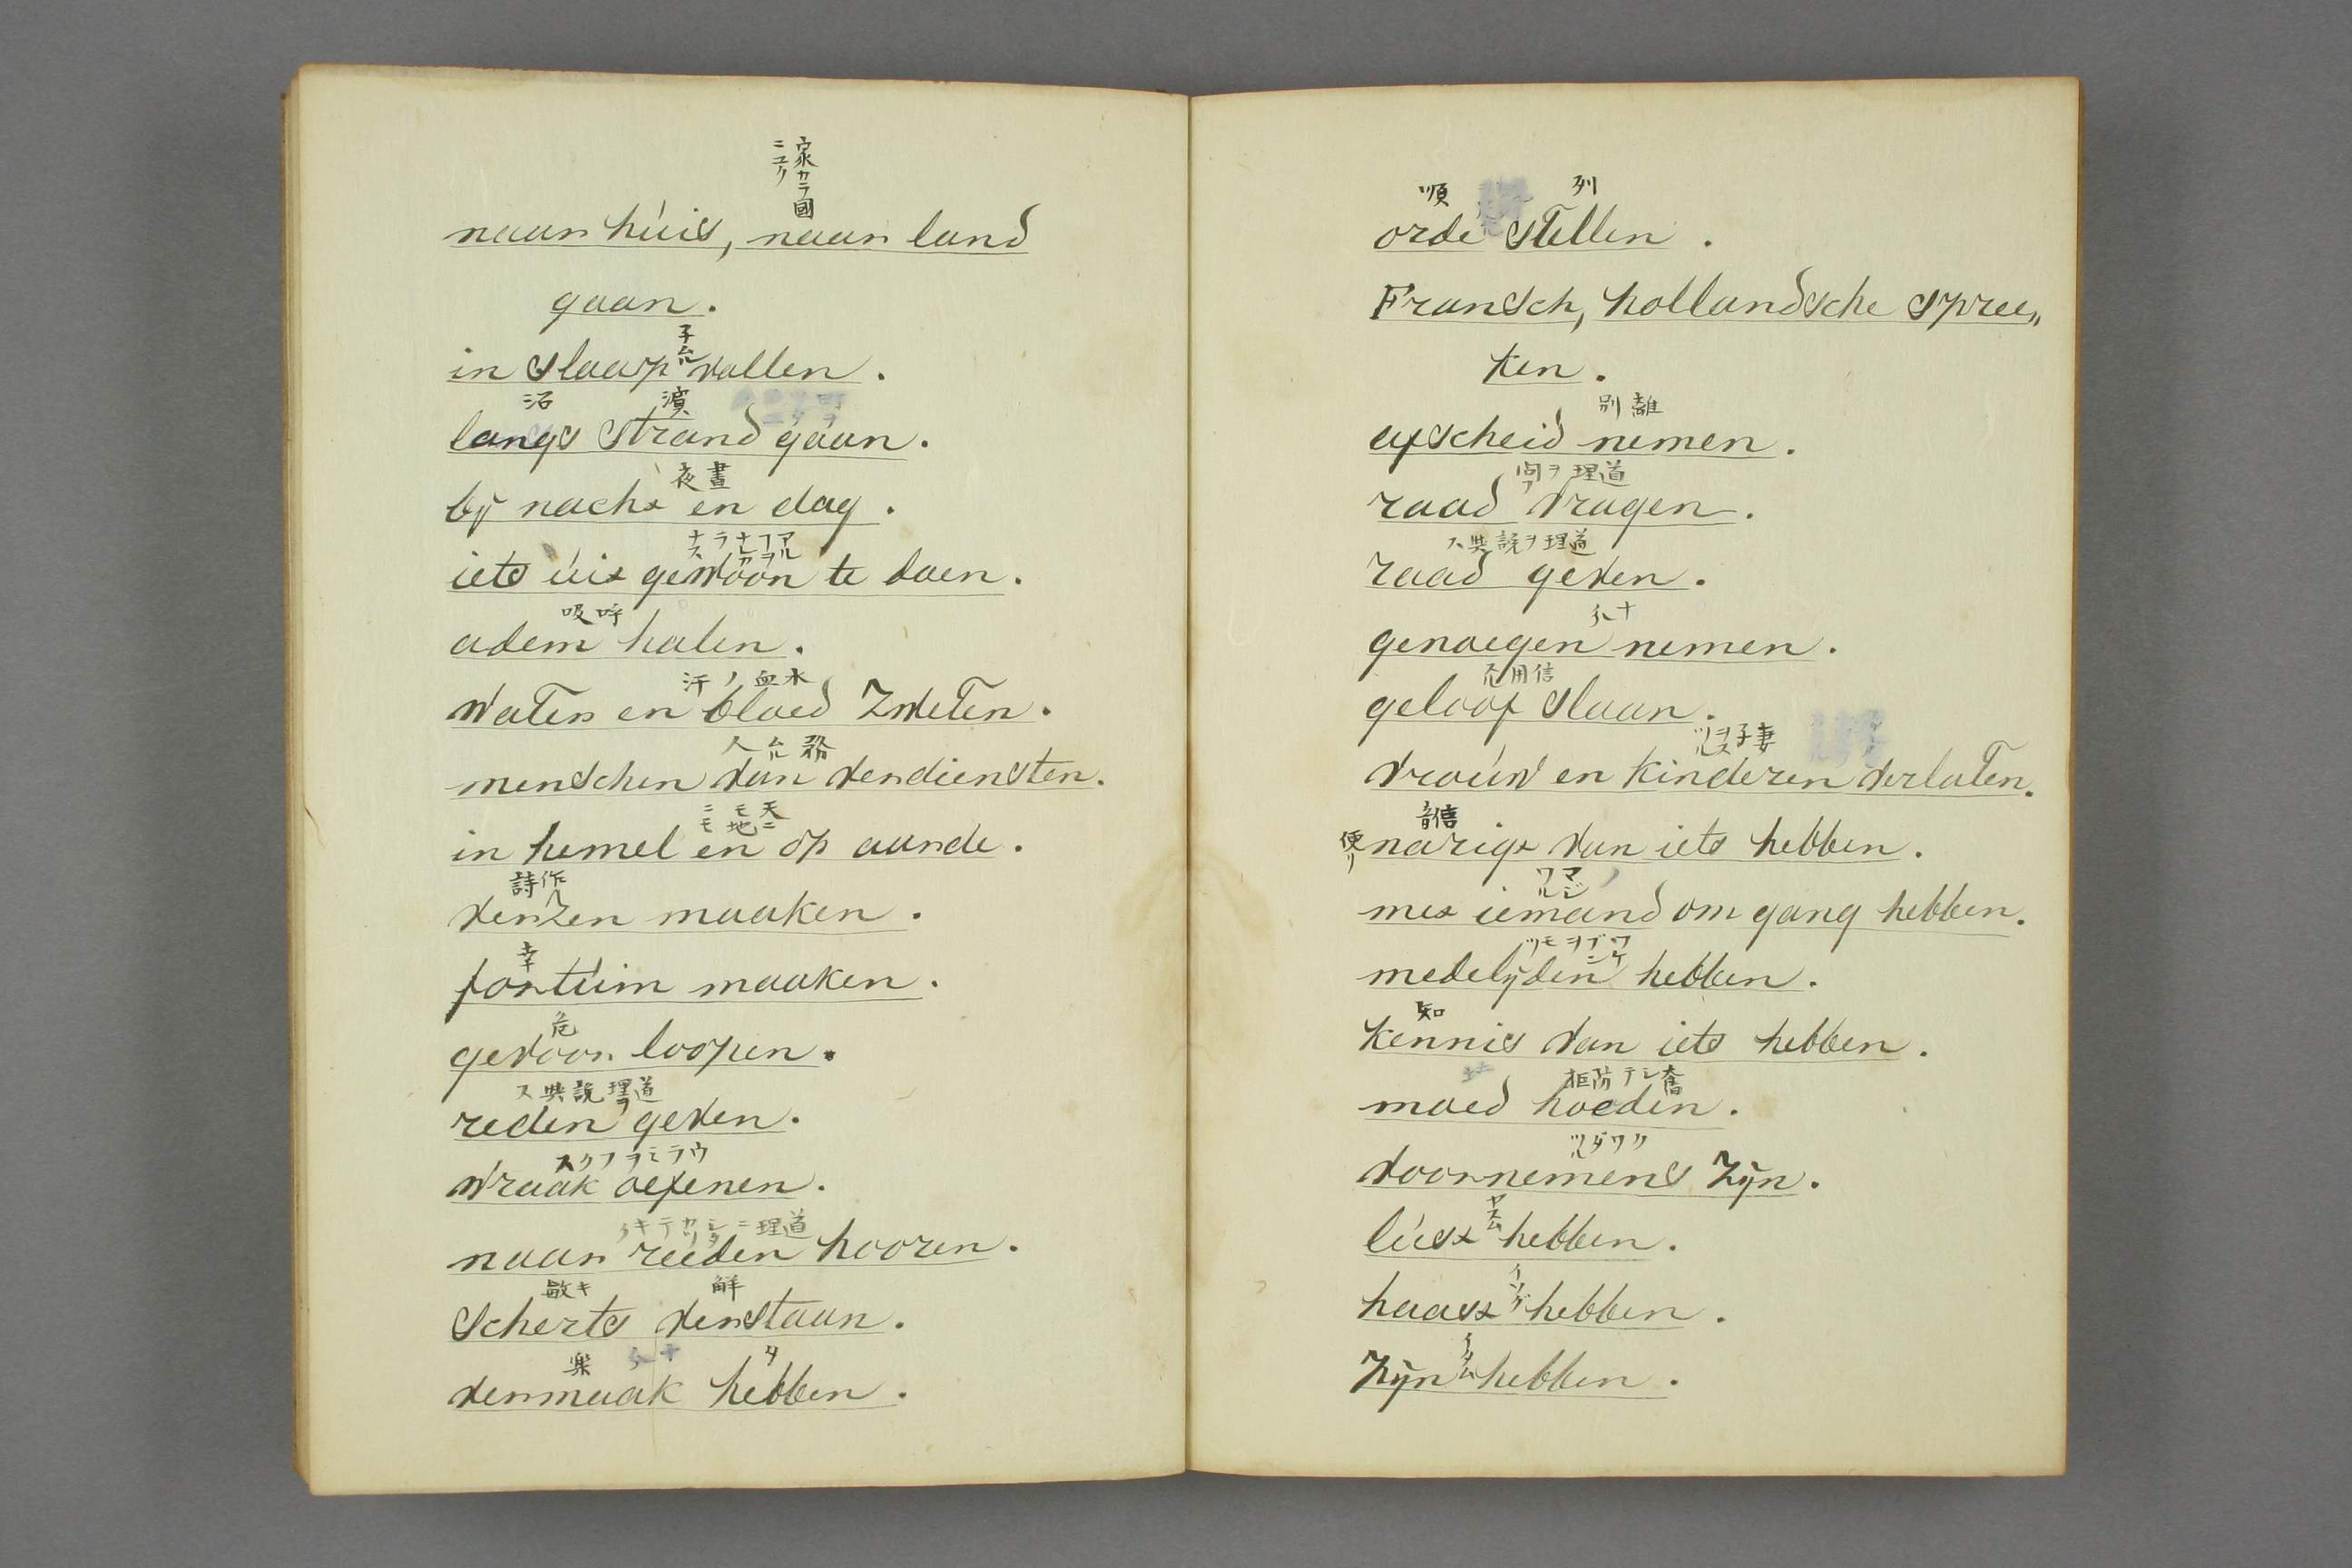 家カラ國
ニユク
naar húis, naar land
gaan.
子ムル
in slaap vallen.
沿 濱
langs strand gaan.
夜晝
bij nacht en dag.
iets úit gewoon te doen.
吸呼
adem halen.
汗ノ血水
water en bloed Zweten.
人ムル務
menschen van verdiensten.
ニモ地モニ天
in hemel en op aarde.
詩作ル
verzen maaken.
幸
fortúin maaken.
危
gevoor loopen.
ス與説ヲ理道
reden geven.
スクフヲミラウ
wraak oefenen.
理道
naar reeden hooren.
敏キ 解
scherts verstaan.
楽 タ
vermaak hebben.
順 列
orde stellen.
Fransch, hollandsche spree„
ken.
別離
afscheid nemen.
問フヲ理道
raad vragen.
ス與説ヲ理道
raad geven.
genoegen nemen.
用信
geloof slaan.
ツルスヲ子妻
vroúw en kinderen verlaten.
音信
便リ
narigt van iets hebben.
マジワル
met iemand om gang hebben.
medelijden hebben.
知
kennis van iets hebben.
拒防テシ奮
moed hoeden.
voornemens zijn.
ヤスム
lúst hebben.
イソグ
haast hebben.
イタム
zijn hebben.